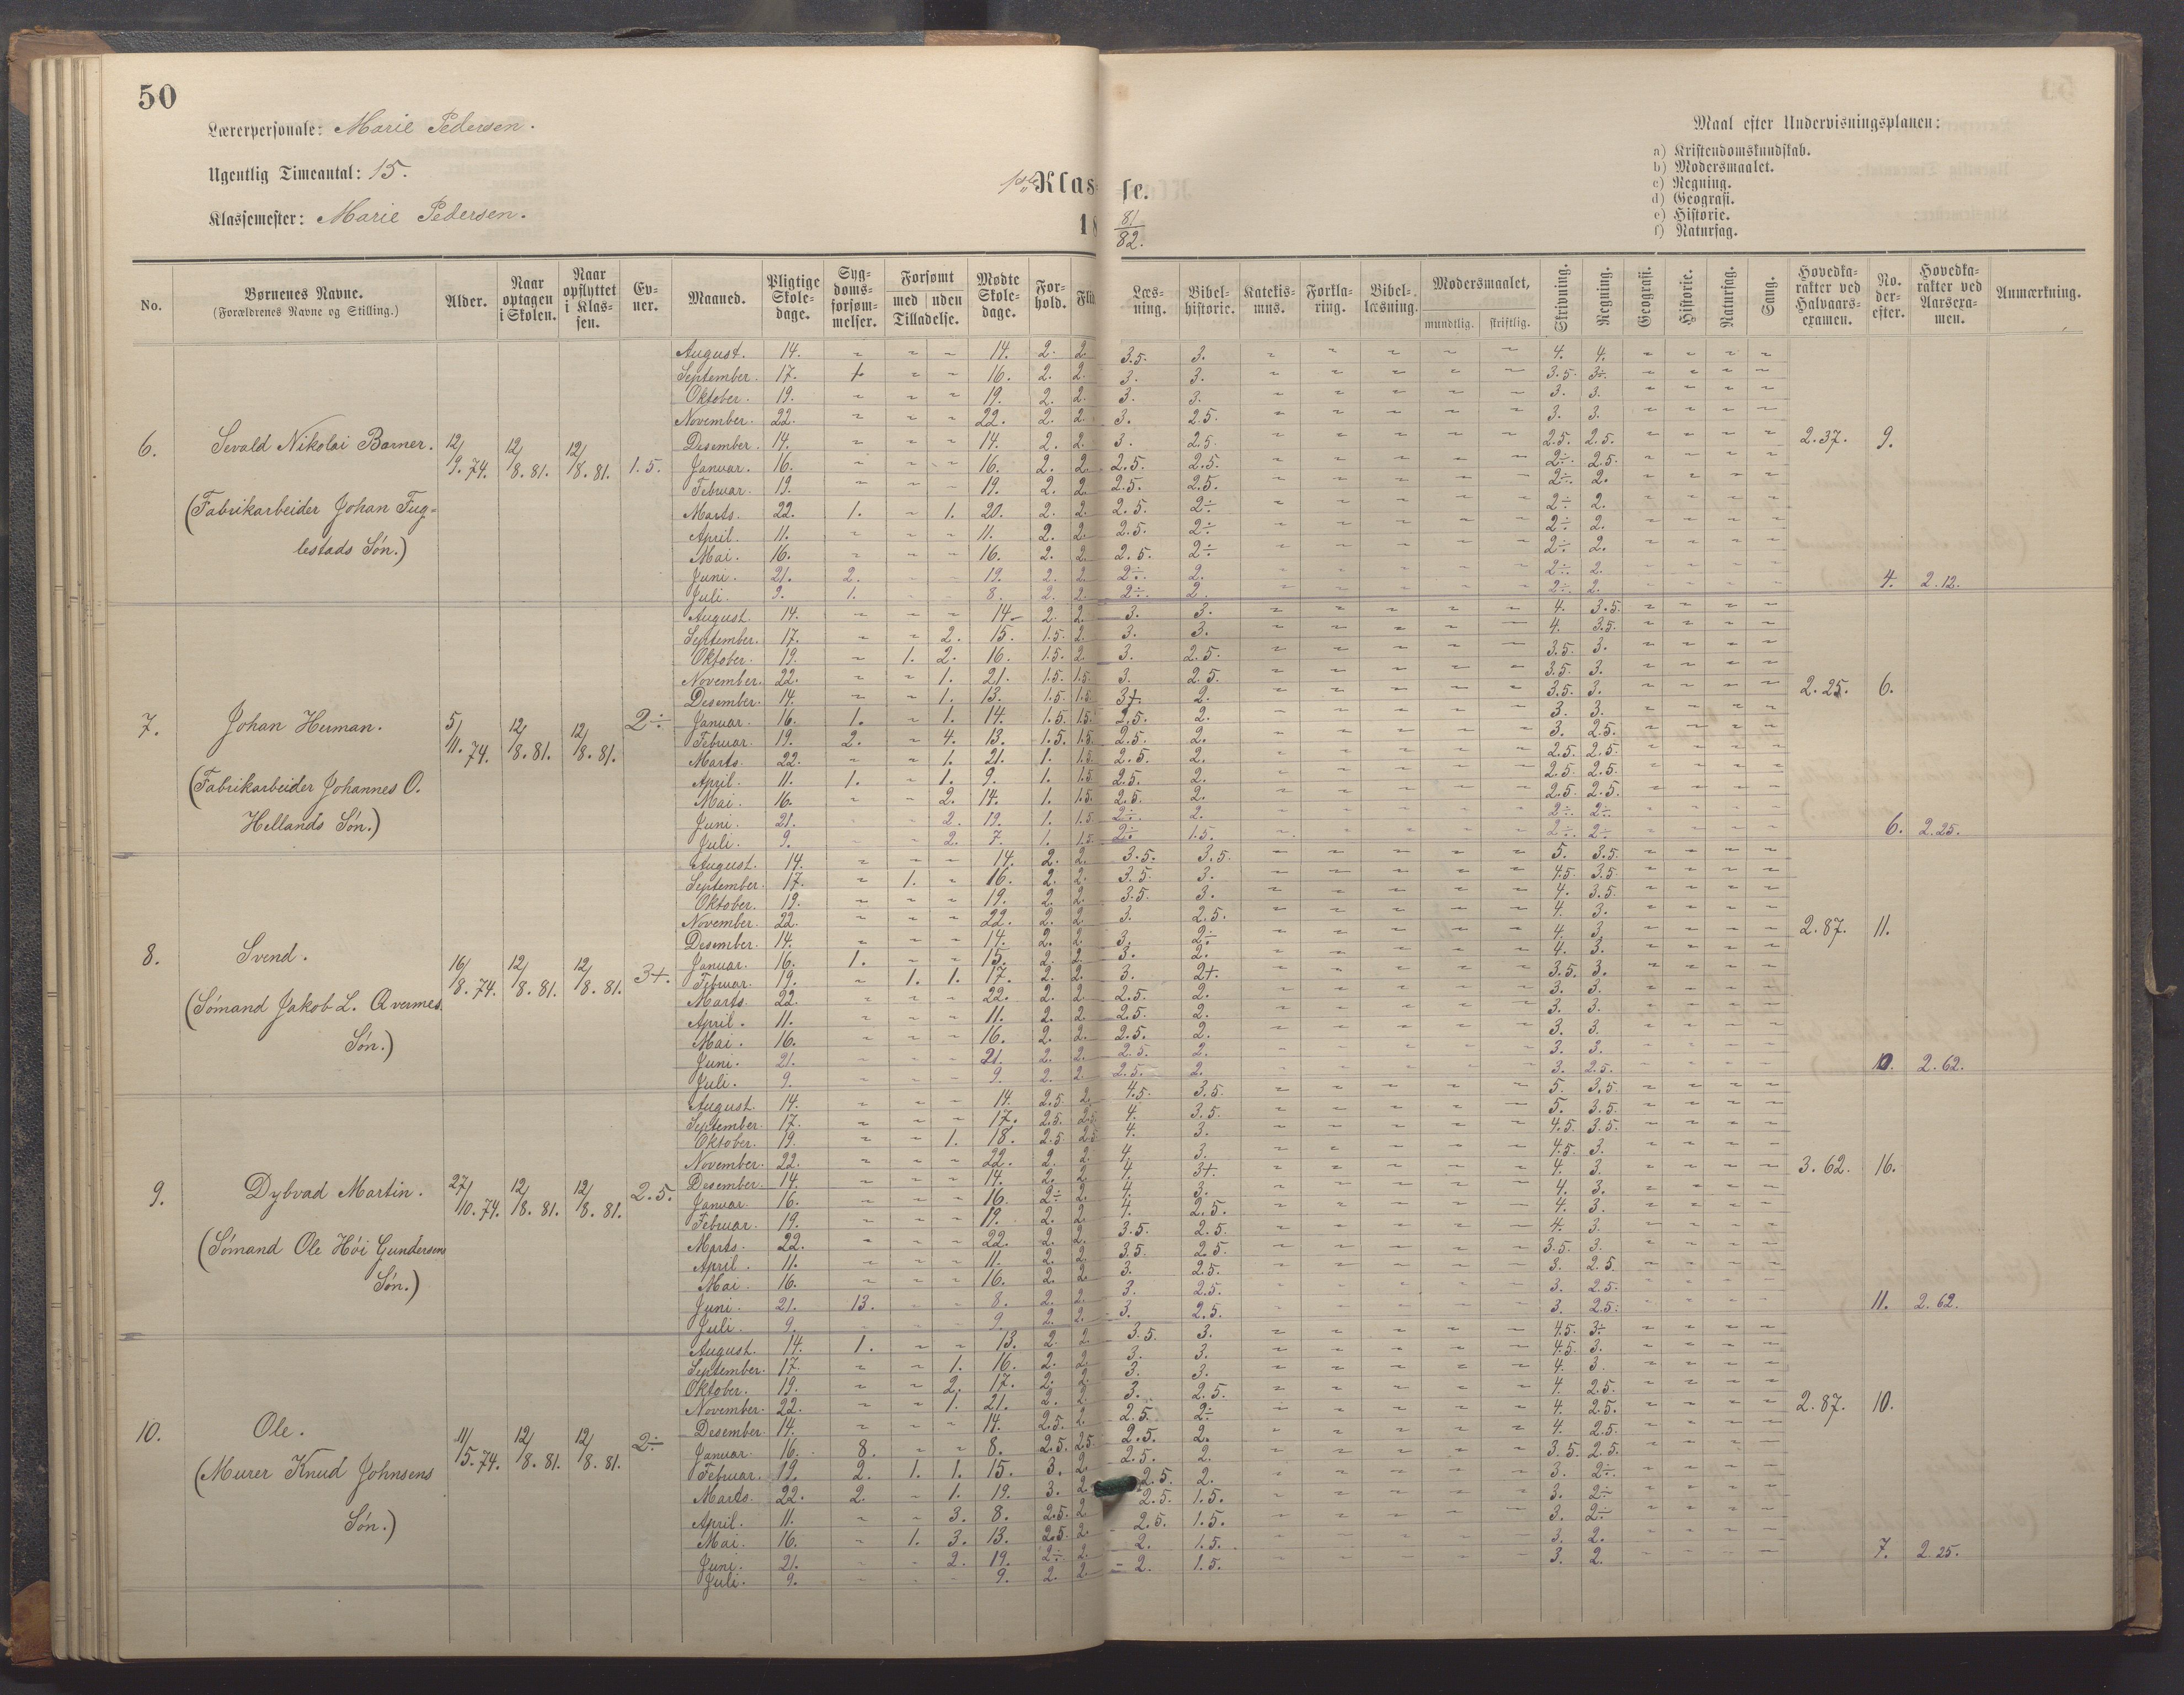 50
Lærerpersonale: Marie Pedersen.
Ugentlig Timeantal: 15.
Klassemester: Marie Pedersen.
1ste Klasse.
18 81/82.
Maal efter Undervisningsplanen:
a) Kristendomskundskab.
b) Modersmaalet.
c) Regning.
d) Geografi.
e) Historie.
f) Naturfag.
No. Børnenes Navne. (Forældrenes Navne og Stilling.) Alder. Naar optagen i Skolen. Naar opflyttet i Klassen. Evner. Maaned. Pligtige Skoledage. Sygdomsforsømmelser. Forsømt med uden Tilladelse. Mødte Skoledage. Forhold. Læsning. Bibelhistorie. Katekismus. Forklaring. Bibellæsning. Modersmaalet, mundtlig. skriftlig. Skrivning. Regning. Geografi. Historie. Naturfag. Sang. Hovedkarakter ved Halvaarsexamen. No. derefter. Hovedkarakter ved Aarsexamen. Anmærkning.
6. Sevald Nikolai Barner. 12/9. 74. 12/8. 81. 12/8. 81. 1.5.
(Fabrikarbeider Johan Fuglestads Søn.)
August. 14. ~ ~ ~ 14. 2. 2. 3.5. 3. ~ ~ ~ ~ ~ 4. 4. ~ ~ ~ ~
September. 17. ~ ~ 16. 2. 2. 3. 3. ~ ~ ~ ~ ~ 3.5. 3÷. ~ ~ ~ ~
Oktober. 19. ~ ~ ~ 19. 2. 2. 3. 3. ~ ~ ~ ~ ~ 3. 3. ~ ~ ~ ~
November. 22. ~ ~ ~ 22. 2. 2. 3. 2.5. ~ ~ ~ ~ ~ 3. 3. ~ ~ ~ ~
Desember. 14. ~ ~ ~ 14. 2. 2. 3. 2.5. ~ ~ ~ ~ ~ 2.5. 2.5. ~ ~ ~ ~ 2.37. 9.
Januar. 16. ~ ~ ~ 16. 2. 2. 2.5. 2.5. ~ ~ ~ ~ ~ 2÷. 2.5. ~ ~ ~ ~
Februar. 19. ~ ~ ~ 19. 2. 2. 2.5. 2.5. ~ ~ ~ ~ ~ 2÷. 2. ~ ~ ~ ~
Marts. 22. 1. ~ 1. 20. 2. 2. 2.5. 2÷ ~ ~ ~ ~ ~ 2÷ 2. ~ ~ ~ ~
April. 11. ~ ~ ~ 11. 2. 2. 2.5. 2÷ ~ ~ ~ ~ ~ 2÷ 2. ~ ~ ~ ~
Mai. 16. ~ ~ ~ 16. 2. 2. 2.5. 2÷ ~ ~ ~ ~ ~ 2÷ 2. ~ ~ ~ ~
Juni. 21. 2. ~ ~ 19. 2. 2. 2÷. 2. ~ ~ ~ ~ ~ 2÷. 2. ~ ~ ~ ~
Juli. 9. 1. ~ ~ 8. 2. 2. 2÷. 2. ~ ~ ~ ~ ~ 2÷. 2. ~ ~ ~ ~ 4. 2.12.
7. Johan Herman. 5/11. 74. 12/8. 81. 12/8. 81. 2÷
(Fabrikarbeider Johannes O. Hellands Søn.)
August. 14. ~ ~ ~ 14 2. 2. 3. 3. ~ ~ ~ ~ ~ 4. 3.5. ~ ~ ~ ~
September. 17. ~ ~ 2. 15. 1.5. 2. 3. 3. ~ ~ ~ ~ ~ 4. 3.5. ~ ~ ~ ~
Oktober. 19. ~ 1. 2. 16. 1.5. 2. 3. 2.5. ~ ~ ~ ~ ~ 3.5. 3. ~ ~ ~ ~
November. 22. ~ ~ 1. 21. 1.5. 1.5. 3. 2.5. ~ ~ ~ ~ ~ 3.5. 3. ~ ~ ~ ~
Desember. 14. ~ ~ 1. 13. 1.5. 1.5. 3+. 2. ~ ~ ~ ~ ~ 3.5. 3. ~ ~ ~ ~ 2.25. 6.
Januar. 16. 1. ~ 1. 14. 1.5. 1.5. 2.5. 2. ~ ~ ~ ~ ~ 3. 3. ~ ~ ~ ~
Februar. 19. 2. ~ 4. 13. 1.5. 1.5. 2.5. 2. ~ ~ ~ ~ ~ 3. 2.5. ~ ~ ~ ~
Marts. 22. ~ ~ 1. 21. 1. 1.5. 2.5. 2. ~ ~ ~ ~ ~ 2.5. 2.5. ~ ~ ~ ~
April. 11. 1. ~ 1. 9. 1. 1.5. 2.5. 2. ~ ~ ~ ~ ~ 2.5. 2.5. ~ ~ ~ ~
Mai. 16. ~ ~ 2. 14. 1. 1.5. 2.5. 2. ~ ~ ~ ~ ~ 2.5. 2.5. ~ ~ ~ ~
Juni. 21. ~ ~ 2. 19. 1. 1.5. 2÷. 2. ~ ~ ~ ~ ~ 2÷. 2÷. ~ ~ ~ ~
Juli. 9. ~ ~ 2. 7. 1. 1.5. 2÷. 1.5. ~ ~ ~ ~ ~ 2÷. 2÷ ~ ~ ~ ~ 6. 2.25.
8. Svend. 16/8. 74. 12/8. 81. 12/8. 81. 3+.
(Sømand Jakob L. Qvermes Søn.)
August. 14. ~ ~ ~ 14. 2. 2. 3.5. 3.5. ~ ~ ~ ~ ~ 5. 3.5. ~ ~ ~ ~
September. 17. ~ 1. ~ 16. 2. 2. 3.5. 3. ~ ~ ~ ~ ~ 4.5. 3.5. ~ ~ ~ ~
Oktober. 19. ~ ~ ~ 19. 2. 2. 3.5. 3. ~ ~ ~ ~ ~ 4. 3.5. ~ ~ ~ ~
November. 22. ~ ~ ~ 22. 2. 2. 3. 2.5. ~ ~ ~ ~ ~ 4. 3. ~ ~ ~ ~
Desember. 14. ~ ~ ~ 14. 2. 2. 3. 2÷. ~ ~ ~ ~ ~ 4. 3. ~ ~ ~ ~ 2.87. 11.
Januar. 16. 1. ~ ~ 15. 2. 2. 3. 2. ~ ~ ~ ~ ~ 4. 3. ~ ~ ~ ~
Februar. 19. ~ 1. 1. 17. 2. 2. 3. 2+. ~ ~ ~ ~ ~ 3.5. 3. ~ ~ ~ ~
Marts. 22. ~ ~ ~ 22. 2. 2. 2.5. 2. ~ ~ ~ ~ ~ 3. 3. ~ ~ ~ ~
April. 11. ~ ~ ~ 11. 2. 2. 2.5. 2. ~ ~ ~ ~ ~ 3. 3. ~ ~ ~ ~
Mai. 16. ~ ~ ~ 16. 2. 2. 2.5. 2. ~ ~ ~ ~ ~ 3. 3. ~ ~ ~ ~
Juni. 21. ~ ~ ~ 21. 2. 2. 2.5. 2. ~ ~ ~ ~ ~ 3. 3. ~ ~ ~ ~
Juli. 9. ~ ~ ~ 9. 2. 2. 2.5. 2. ~ ~ ~ ~ ~ 3. 2.5. ~ ~ ~ ~ 10. 2.62.
9. Dybvad Martin. 27/10. 74. 12/8. 81. 12/8. 81. 2.5.
(Sømand Ole Høi Gundersens Søn.)
August. 14. ~ ~ ~ 14. 2.5. 2. 4.5. 3.5. ~ ~ ~ ~ ~ 5. 3.5. ~ ~ ~ ~
September. 17. ~ ~ ~ 17. 2.5. 2.5. 4. 3.5. ~ ~ ~ ~ ~ 5. 3.5. ~ ~ ~ ~
Oktober. 19. ~ ~ 1. 18. 2.5. 2.5. 4. 3. ~ ~ ~ ~ ~ 4.5. 3.5. ~ ~ ~ ~
November. 22. ~ ~ ~ 22. 2. 2. 4. 3. ~ ~ ~ ~ ~ 4.5. 3. ~ ~ ~ ~
Desember. 14. ~ ~ ~ 14. 2. 2. 4. 3+. ~ ~ ~ ~ ~ 4. 3. ~ ~ ~ ~ 3.62. 16.
Januar. 16. ~ ~ ~ 16. 2÷ 2. 4. 3. ~ ~ ~ ~ ~ 4. 3. ~ ~ ~ ~
Februar. 19. ~ ~ ~ 19. 2. 2. 4. 2.5. ~ ~ ~ ~ ~ 4. 3. ~ ~ ~ ~
Marts. 22. ~ ~ ~ 22. 2. 2. 3.5. 2.5. ~ ~ ~ ~ ~ 4. 3. ~ ~ ~ ~
April. 11. ~ ~ ~ 11. 2. 2. 3.5. 2.5. ~ ~ ~ ~ ~ 3.5. 3. ~ ~ ~ ~
Mai. 16. ~ ~ ~ 16. 2. 2. 3. 2.5. ~ ~ ~ ~ ~ 3. 2.5. ~ ~ ~ ~
Juni. 21. 13. ~ ~ 8. 2. 2. 3. 2.5. ~ ~ ~ ~ ~ 3. 2.5. ~ ~ ~ ~
Juli. 9. ~ ~ ~ 9. 2. 2. 3. 2.5. ~ ~ ~ ~ ~ 3. 2.5. ~ ~ ~ ~ 11. 2.62.
10. Ole. 11/5. 74. 12/8. 81. 12/8. 81. 2÷
(Murer Knud Johnsens Søn.)
August. 14. 1. ~ ~ 13. 2. 2. 3.5. 3. ~ ~ ~ ~ ~ 4.5. 3÷ ~ ~ ~ ~
September. 17. ~ ~ 1. 16. 2. 2. 3. 3. ~ ~ ~ ~ ~ 4.5. 3. ~ ~ ~ ~
Oktober. 19. ~ ~ 2. 17. 2. 2. 3. 3. ~ ~ ~ ~ ~ 4. 3. ~ ~ ~ ~
November. 22. ~ ~ 1. 21. 2. 2. 3. 2.5. ~ ~ ~ ~ ~ 4. 2.5. ~ ~ ~ ~
Desember. 14. ~ ~ ~ 14. 2.5. 2. 2.5. 2÷ ~ ~ ~ ~ ~ 4. 2.5. ~ ~ ~ ~ 2.87. 10.
Januar. 16. 8. ~ ~ 8. 2.5. 2.5. 2.5. 2. ~ ~ ~ ~ ~ 4. 2.5. ~ ~ ~ ~
Februar. 19. 2. 1. 1. 15. 3. 2. 2.5. 2. ~ ~ ~ ~ ~ 3.5. 2.5. ~ ~ ~ ~
Marts. 22. 2. ~ 1. 19. 3. 2. 2.5. 2. ~ ~ ~ ~ ~ 3. 2÷. ~ ~ ~ ~
April. 11. ~ ~ 3. 8. 2.5. 2. 2.5. 1.5. ~ ~ ~ ~ ~ 3. 2÷ ~ ~ ~ ~
Mai. 16. ~ 1. 3. 13. 2.5. 2. 2.5. 1.5. ~ ~ ~ ~ ~ 3. 2÷ ~ ~ ~ ~
Juni. 21. ~ ~ 2. 19. 2÷ 2. 2. 1.5. ~ ~ ~ ~ ~ 3. 2. ~ ~ ~ ~
Juli. 9. ~ ~ ~ 9. 2. 2. 2. 1.5. ~ ~ ~ ~ ~ 3. 2. ~ ~ ~ ~ 7. 2.25.